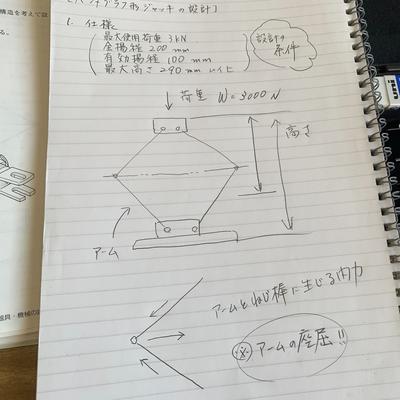 パンタグラフ形ジャッキの設計〕
1. 仕様
最大使用荷重 3kN
全揚程 200 mm
有効揚程 100 mm
最大高さ 290 mm 以上
設計の
条件
荷重 W=3000N
高さ
アーム
アームとねじ棒に生じる内力
※ アームの座屈!!
構造を考えて設
る。
器具・機械の